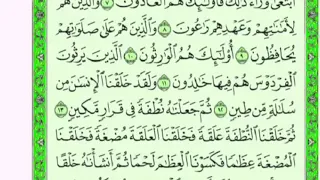 ٱبْتَغَىٰ وَرَآءَ ذَٰلِكَ فَأُو۟لَٰٓئِكَ هُمُ ٱلْعَادُونَ ٧ وَٱلَّذِينَ هُمْ
لِأَمَٰنَٰتِهِمْ وَعَهْدِهِمْ رَٰعُونَ ٨ وَٱلَّذِينَ هُمْ عَلَىٰ صَلَوَٰتِهِمْ
يُحَافِظُونَ ٩ أُو۟لَٰٓئِكَ هُمُ ٱلْوَٰرِثُونَ ١٠ ٱلَّذِينَ يَرِثُونَ
ٱلْفِرْدَوْسَ هُمْ فِيهَا خَٰلِدُونَ ١١ وَلَقَدْ خَلَقْنَا ٱلْإِنسَٰنَ مِن
سُلَٰلَةٍ مِّن طِينٍ ١٢ ثُمَّ جَعَلْنَٰهُ نُطْفَةً فِى قَرَارٍ مَّكِينٍ ١٣
ثُمَّ خَلَقْنَا ٱلنُّطْفَةَ عَلَقَةً فَخَلَقْنَا ٱلْعَلَقَةَ مُضْغَةً فَخَلَقْنَا
ٱلْمُضْغَةَ عِظَٰمًا فَكَسَوْنَا ٱلْعِظَٰمَ لَحْمًا ثُمَّ أَنشَأْنَٰهُ خَلْقًا